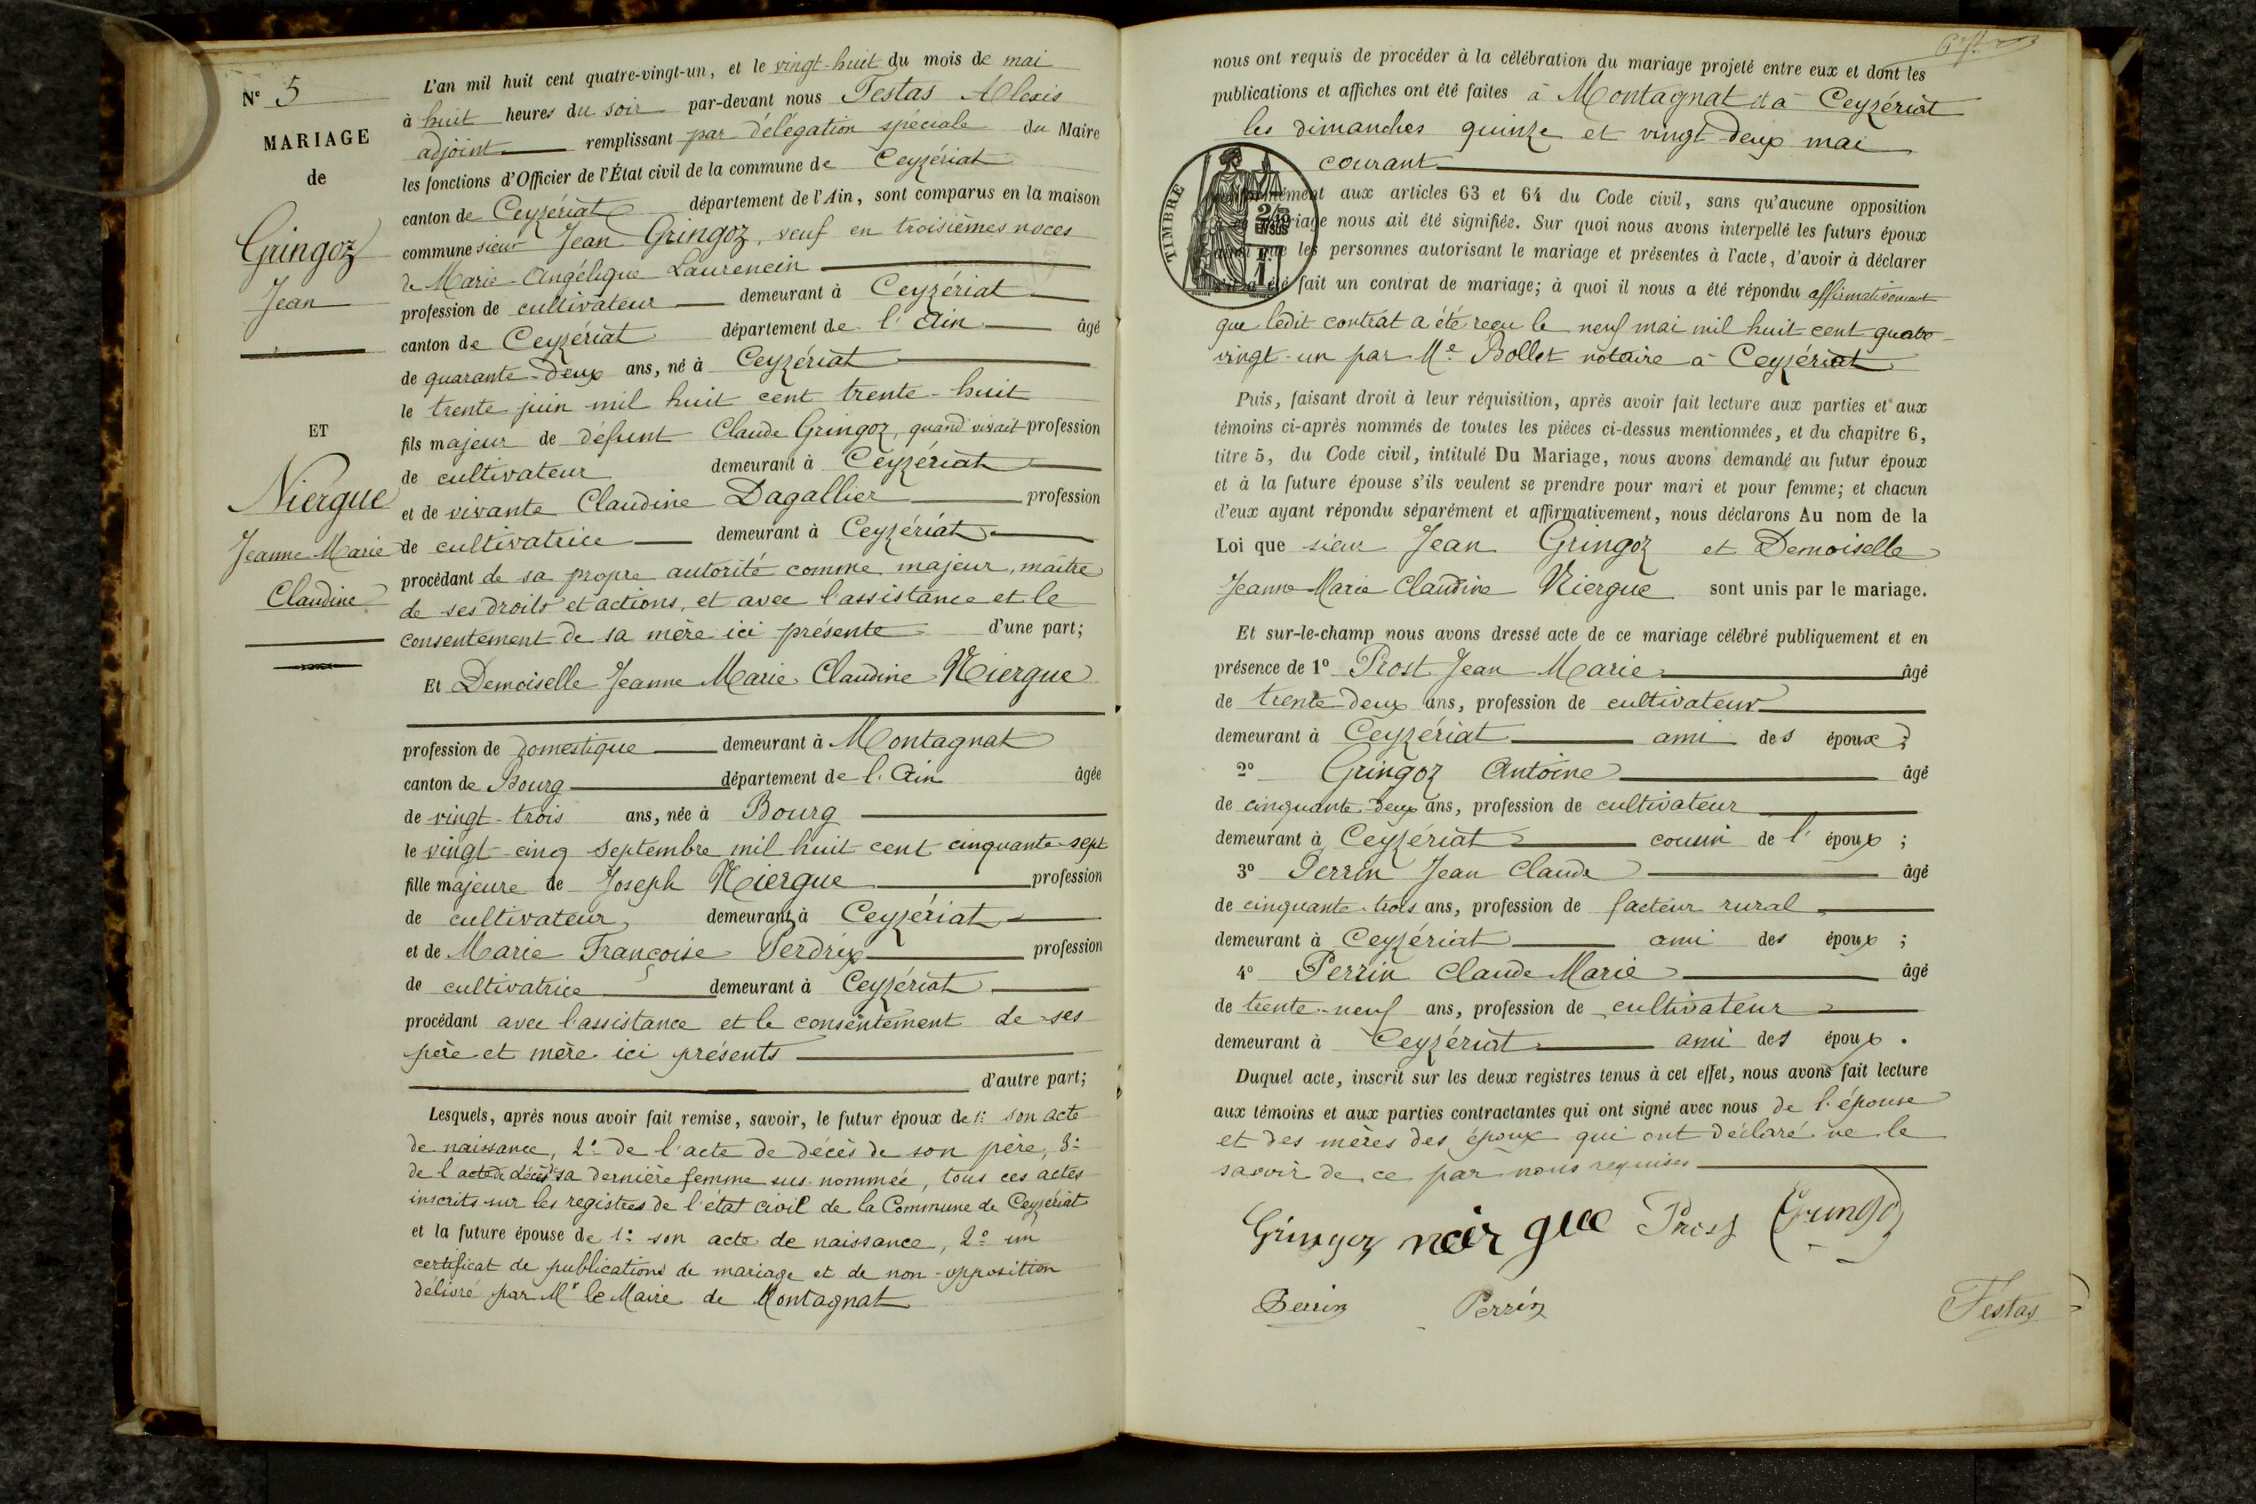 N° 5
MARIAGE
de
Gringoz
Jean
ET
Niergue
Jeanne Marie
Claudine
L'an mil huit cent quatre-vingt-un, et le vingt-huit du mois de mai
à huit heures du soir par-devant nous Festas Alexis
adjoint remplissant par délégation spéciale du Maire
les fonctions d'Officier de l'État civil de la commune de Ceyzériat
canton de Ceyzériat département de l'Ain, sont comparus en la maison
commune sieur Jean Gringoz, veuf en troisièmes noces
de Marie-Angélique Laurencin
profession de cultivateur demeurant à Ceyzériat
canton de Ceyzériat département de l'Ain âgé
de quarante-deux ans, né à Ceyzériat
le trente juin mil huit cent trente-huit
fils majeur de défunt Claude Gringoz, quand vivait profession
de cultivateur demeurant à Ceyzériat
et de vivante Claudine Dagallier profession
de cultivatrice demeurant à Ceyzériat
procédant de sa propre autorité comme majeur, maître
de ses droits et actions, et avec l'assistance et le
consentement de sa mère ici présente d'une part;
Et Demoiselle Jeanne Marie Claudine Niergue
profession de domestique demeurant à Montagnat
canton de Bourg département de l'Ain âgée
de vingt-trois ans, née à Bourg
le vingt-cinq septembre mil huit cent cinquante-sept
fille majeure de Joseph Niergue profession
de cultivateur demeurant à Ceyzériat
et de Marie Françoise Perdrix profession
de cultivatrice demeurant à Ceyzériat
procédant avec l'assistance et le consentement de ses
père et mère ici présents
d'autre part;
Lesquels, après nous avoir fait remise, savoir, le futur époux de 1° son acte
de naissance, 2° de l'acte de décès de son père, 3°
de l'acte de décès de sa dernière femme sus-nommée, tous ces actes
inscrits sur les registres de l'état civil de la Commune de Ceyzériat
et la future épouse de 1° son acte de naissance, 2° un
certificat de publications de mariage et de non-opposition
délivré par Mr le Maire de Montagnat
nous ont requis de procéder à la célébration du mariage projeté entre eux et dont les
publications et affiches ont été faites à Montagnat et à Ceyzériat
les dimanches quinze et vingt-deux mai
courant
TIMBRE
aux articles 63 et 64 du Code civil, sans qu'aucune opposition
nous ait été signifiée. Sur quoi nous avons interpellé les futurs époux
les personnes autorisant le mariage et présentes à l'acte, d'avoir à déclarer
fait un contrat de mariage; à quoi il nous a été répondu affirmativement
que ledit contrat a été reçu le neuf mai mil huit cent quatre-
vingt-un par Me Bollet notaire à Ceyzériat
Puis, faisant droit à leur réquisition, après avoir fait lecture aux parties et aux
témoins ci-après nommés de toutes les pièces ci-dessus mentionnées, et du chapitre 6,
titre 5, du Code civil, intitulé Du Mariage, nous avons demandé au futur époux
et à la future épouse s'ils veulent se prendre pour mari et pour femme; et chacun
d'eux ayant répondu séparément et affirmativement, nous déclarons Au nom de la
Loi que sieur Jean Gringoz et Demoiselle
Jeanne-Marie Claudine Niergue sont unis par le mariage.
Et sur-le-champ nous avons dressé acte de ce mariage célébré publiquement et en
présence de 1° Prost Jean Marie âgé
de trente-deux ans, profession de cultivateur
demeurant à Ceyzériat ami des époux;
2° Gringoz Antoine âgé
de cinquante-deux ans, profession de cultivateur
demeurant à Ceyzériat cousin de l'époux;
3° Perrin Jean Claude âgé
de cinquante-trois ans, profession de facteur rural
demeurant à Ceyzériat ami des époux;
4° Perrin Claude Marie âgé
de trente-neuf ans, profession de cultivateur
demeurant à Ceyzériat ami des époux.
Duquel acte, inscrit sur les deux registres tenus à cet effet, nous avons fait lecture
aux témoins et aux parties contractantes qui ont signé avec nous de l'épouse
et des mères des époux qui ont déclaré ne le
savoir de ce par nous requises
Gringoz neirgue Prost Gringoz
Perrin Perrin
Festas